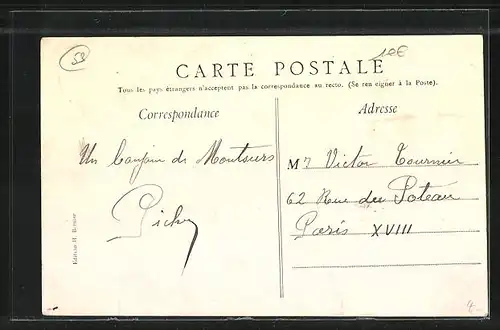 53
10€
CARTE POSTALE
Tous les pays étrangers n'acceptent pas la correspondance au recto. (Se ren eigner à la Poste).
Correspondance
Adresse
Un bonjour de Montsurs
Mr Victor Tournier
62 Rue du Poteau
Paris XVIII
Edition H.